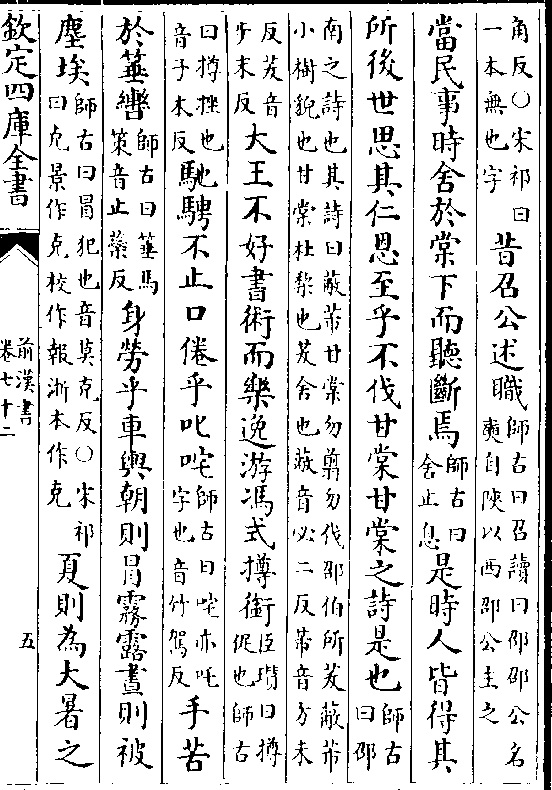 角反○宋祁曰
一本無也字
昔召公述職
師古曰召讀曰邵邵公名
奭自陝以西邵公主之
當民事時舍於棠下而聽斷焉
師古曰
舍止息
是時人皆得其
所後世思其仁恩至乎不伐甘棠甘棠之詩是也
師古
曰邵
南之詩也其詩曰蔽芾甘棠勿翦勿伐邵伯所茇蔽芾
小樹貌也甘棠杜棃也茇舍也蔽音必二反芾音方未
反茇音
步末反
大王不好書術而樂逸游馮式撙銜
臣瓚曰撙
促也師古
曰撙挫也
音子木反
馳騁不止口倦乎叱咤
師古曰咤亦吒
字也音竹駕反
手苦
於箠轡
師古曰箠馬
策音止蘂反
身勞乎車輿朝則冒霧露晝則被
塵埃
師古曰冒犯也音莫克反○宋祁
曰克景作克校作報浙本作克
夏則為大暑之
欽定四庫全書
前漢書
卷七十二
五